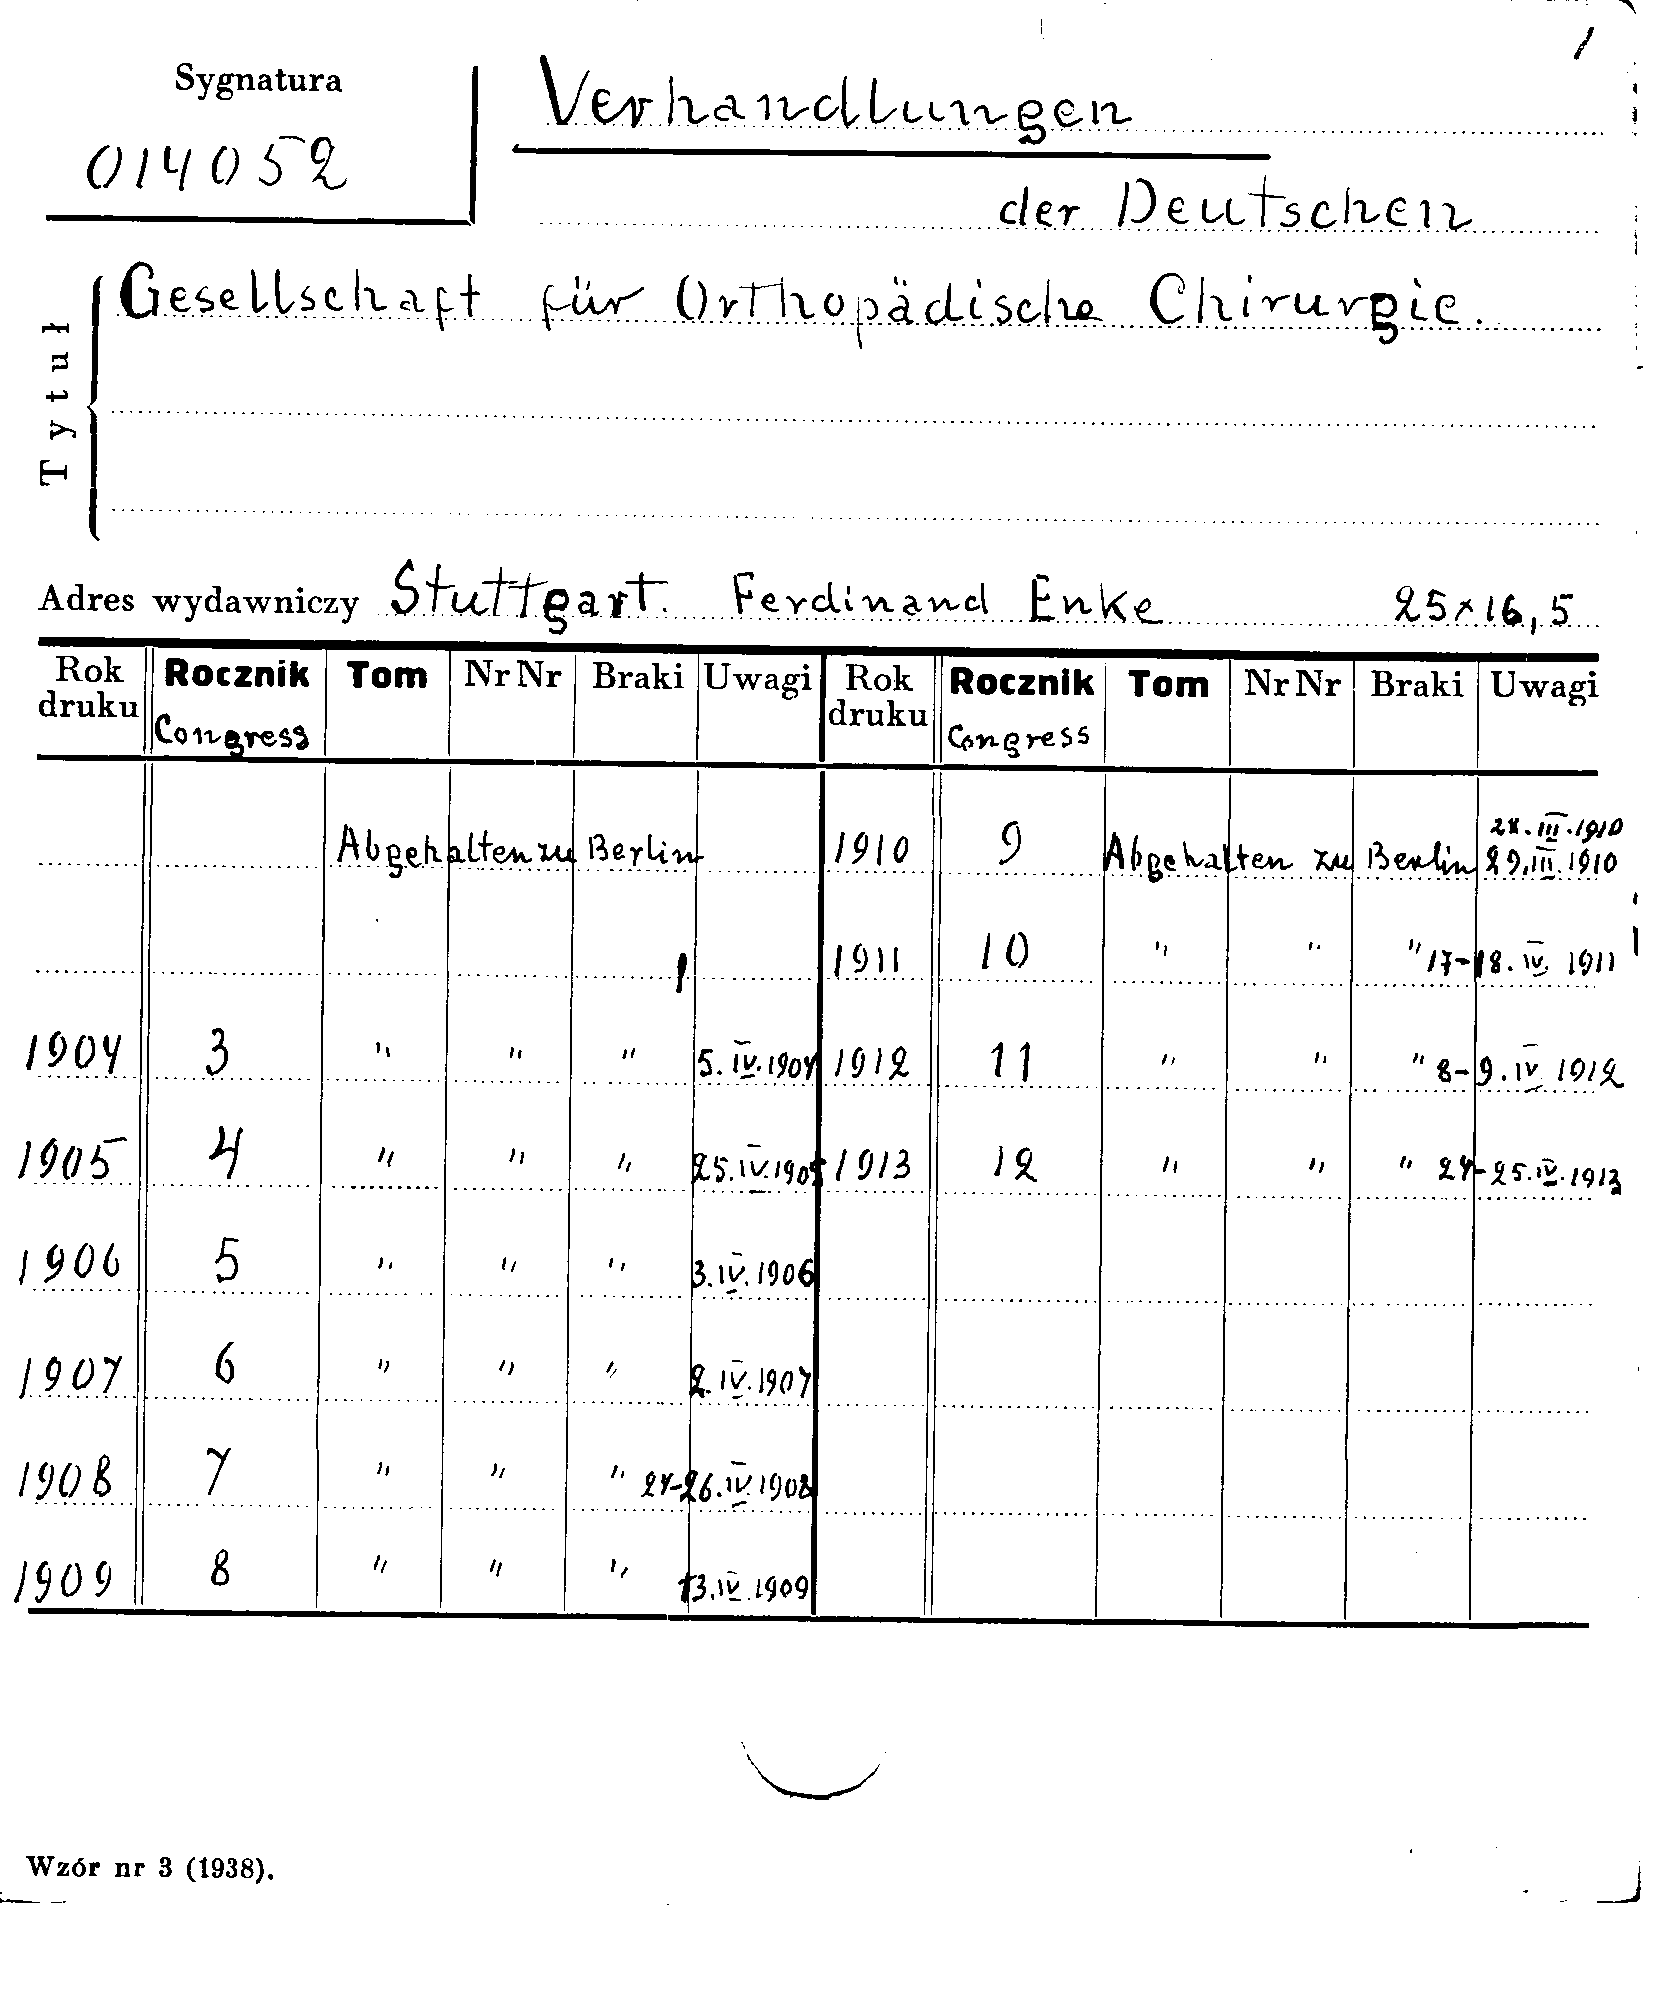 1
Sygnatura
014052
Verhandlungen
der Deutschen
Tytuł
Gesellschaft für Orthopädische Chirurgie.
Adres wydawniczy Stuttgart. Ferdinand Enke 25×16,5
Rok druku Rocznik Tom Nr Nr Braki Uwagi Rok druku Rocznik Tom Nr Nr Braki Uwagi
Congress Congress
Abgehalten zu Berlin 1910 9 Abgehalten zu Berlin 28.III.1910 29.III.1910
1911 10 " " " 17-18.IV.1911
1904 3 " " " 5.IV.1904 1912 11 " " " 8-9.IV 1912
1905 4 " " " 25.IV.1905 1913 12 " " " 24-25.IV.1913
1906 5 " " " 3.IV.1906
1907 6 " " " 2.IV.1907
1908 7 " " " 24-26.IV.1908
1909 8 " " " 13.IV.1909
Wzór nr 3 (1938).